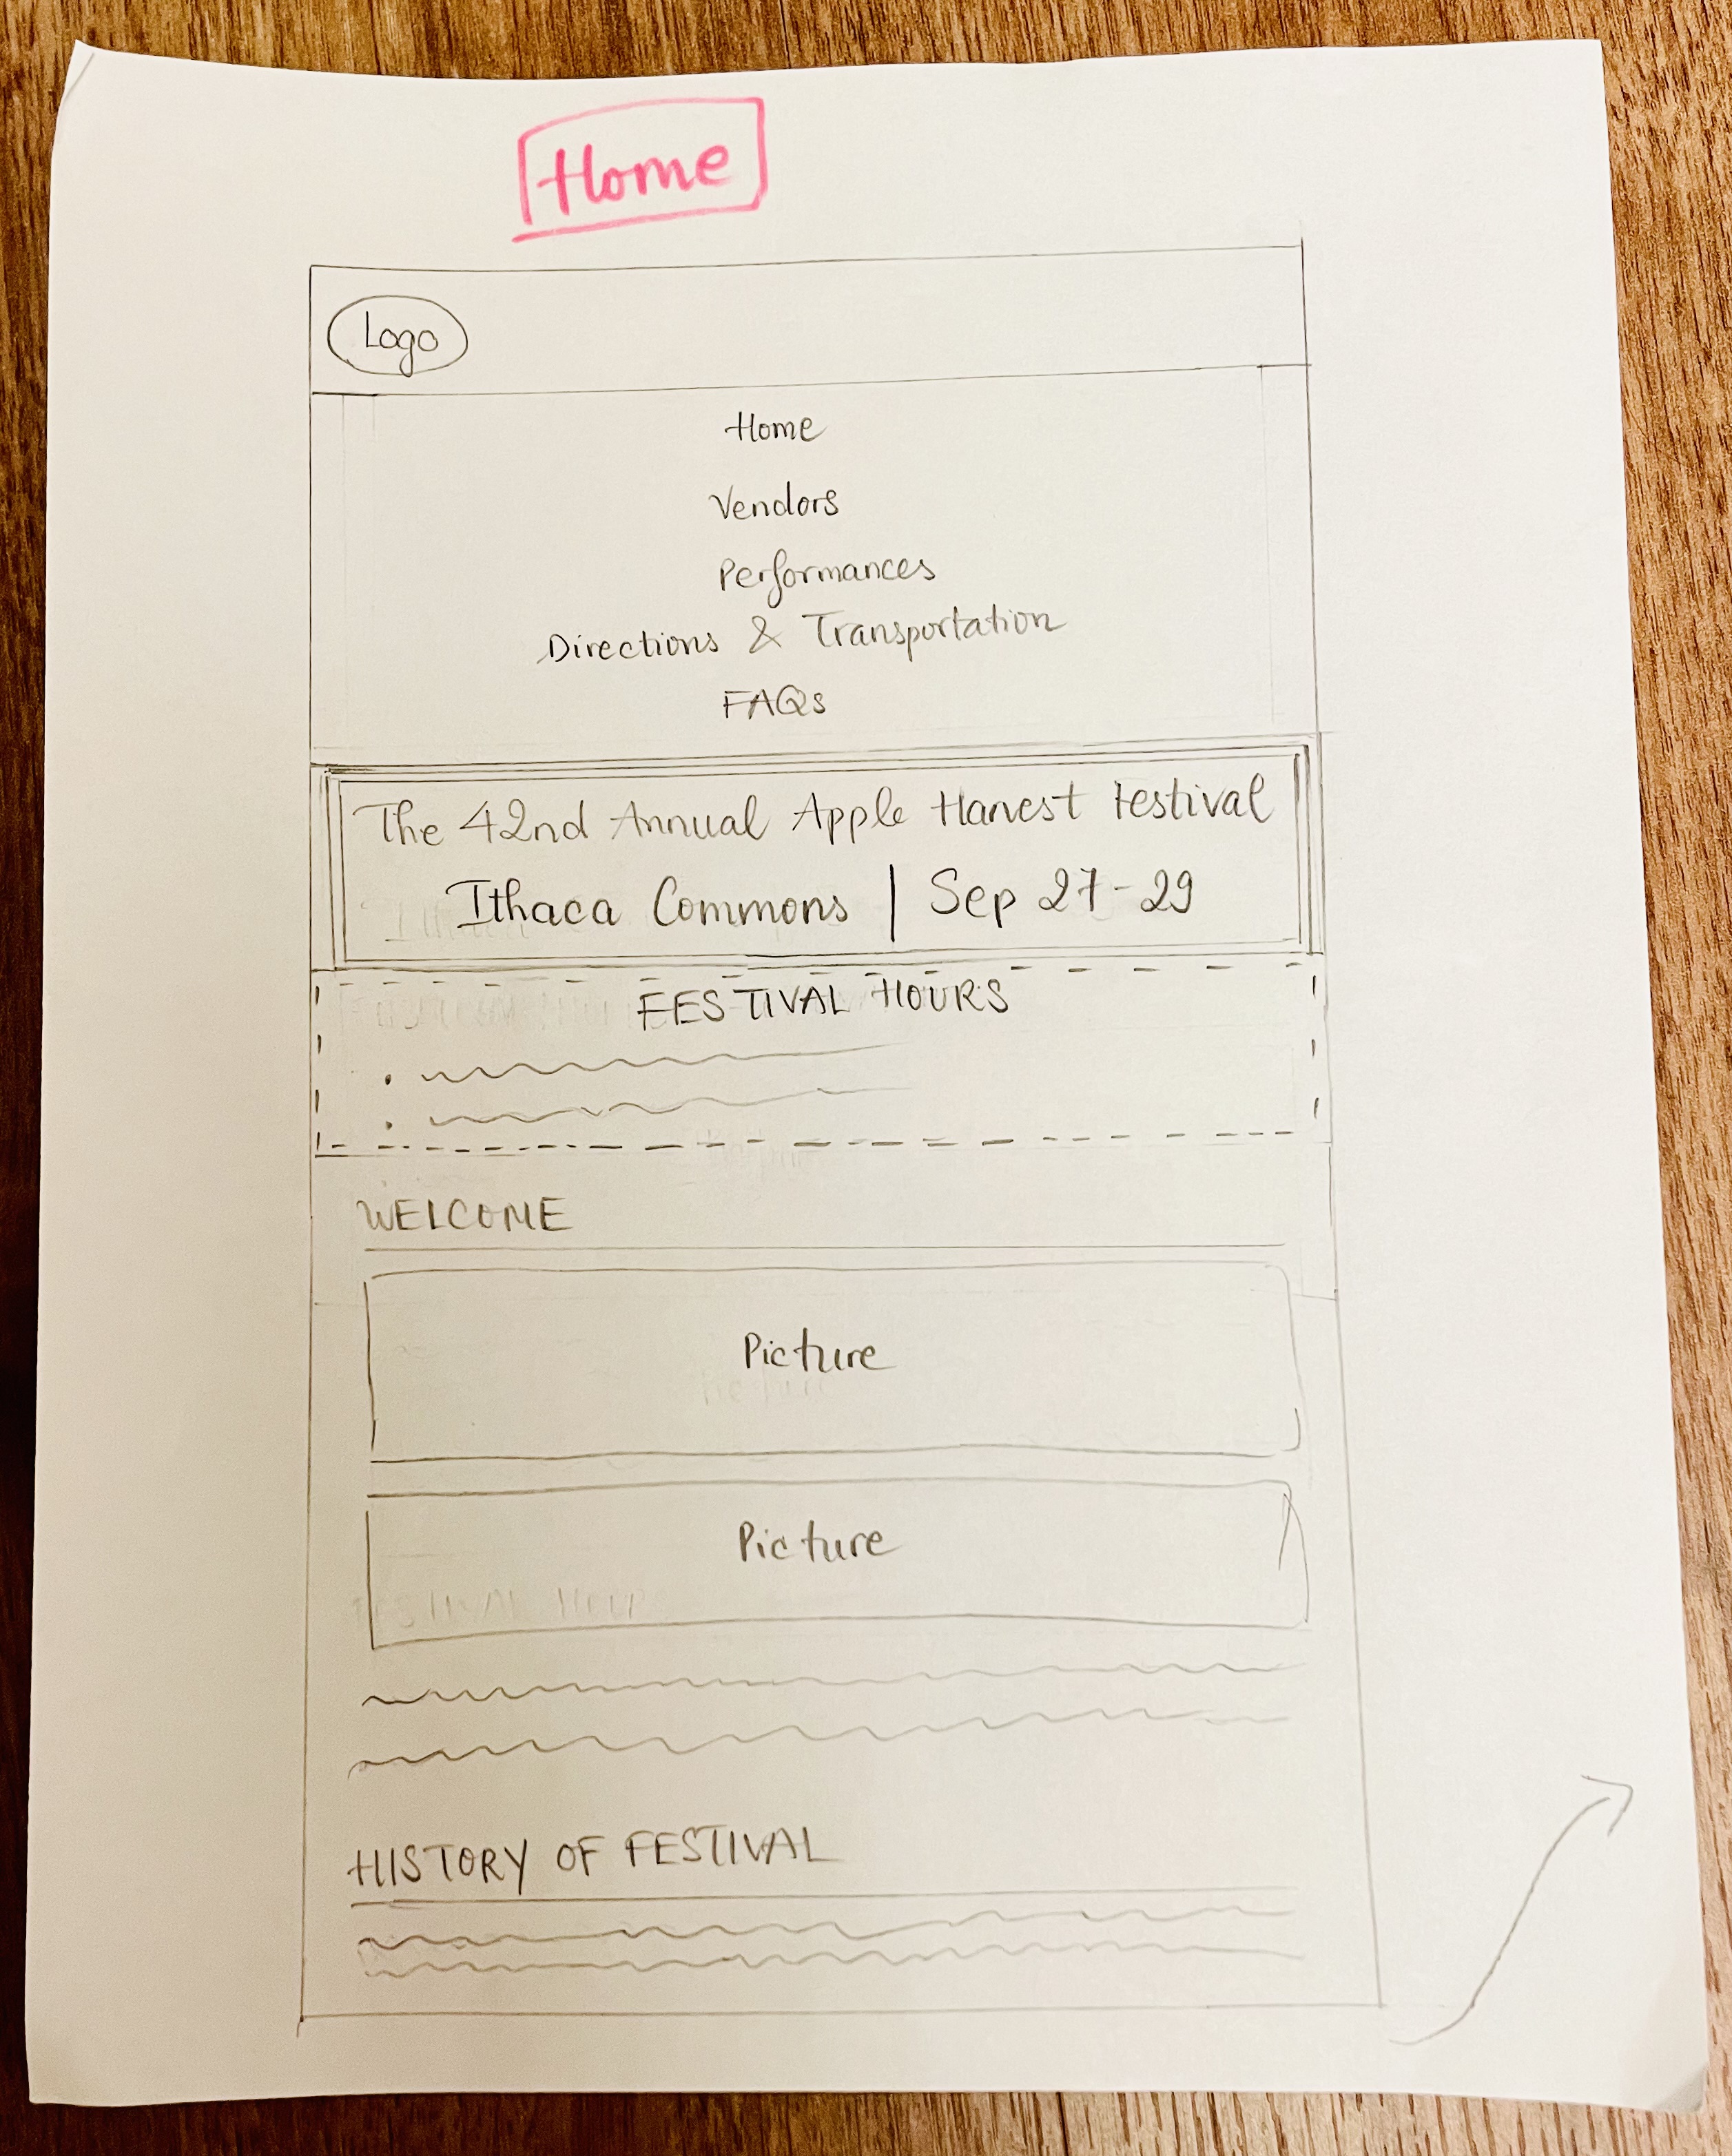 Home
Logo
Home
Vendors
Performances
Directions & Transportation
FAQs
The 42nd Annual Apple Harvest Festival
Ithaca Commons | Sep 27-29
FESTIVAL HOURS
WELCOME
Picture
Picture
HISTORY OF FESTIVAL